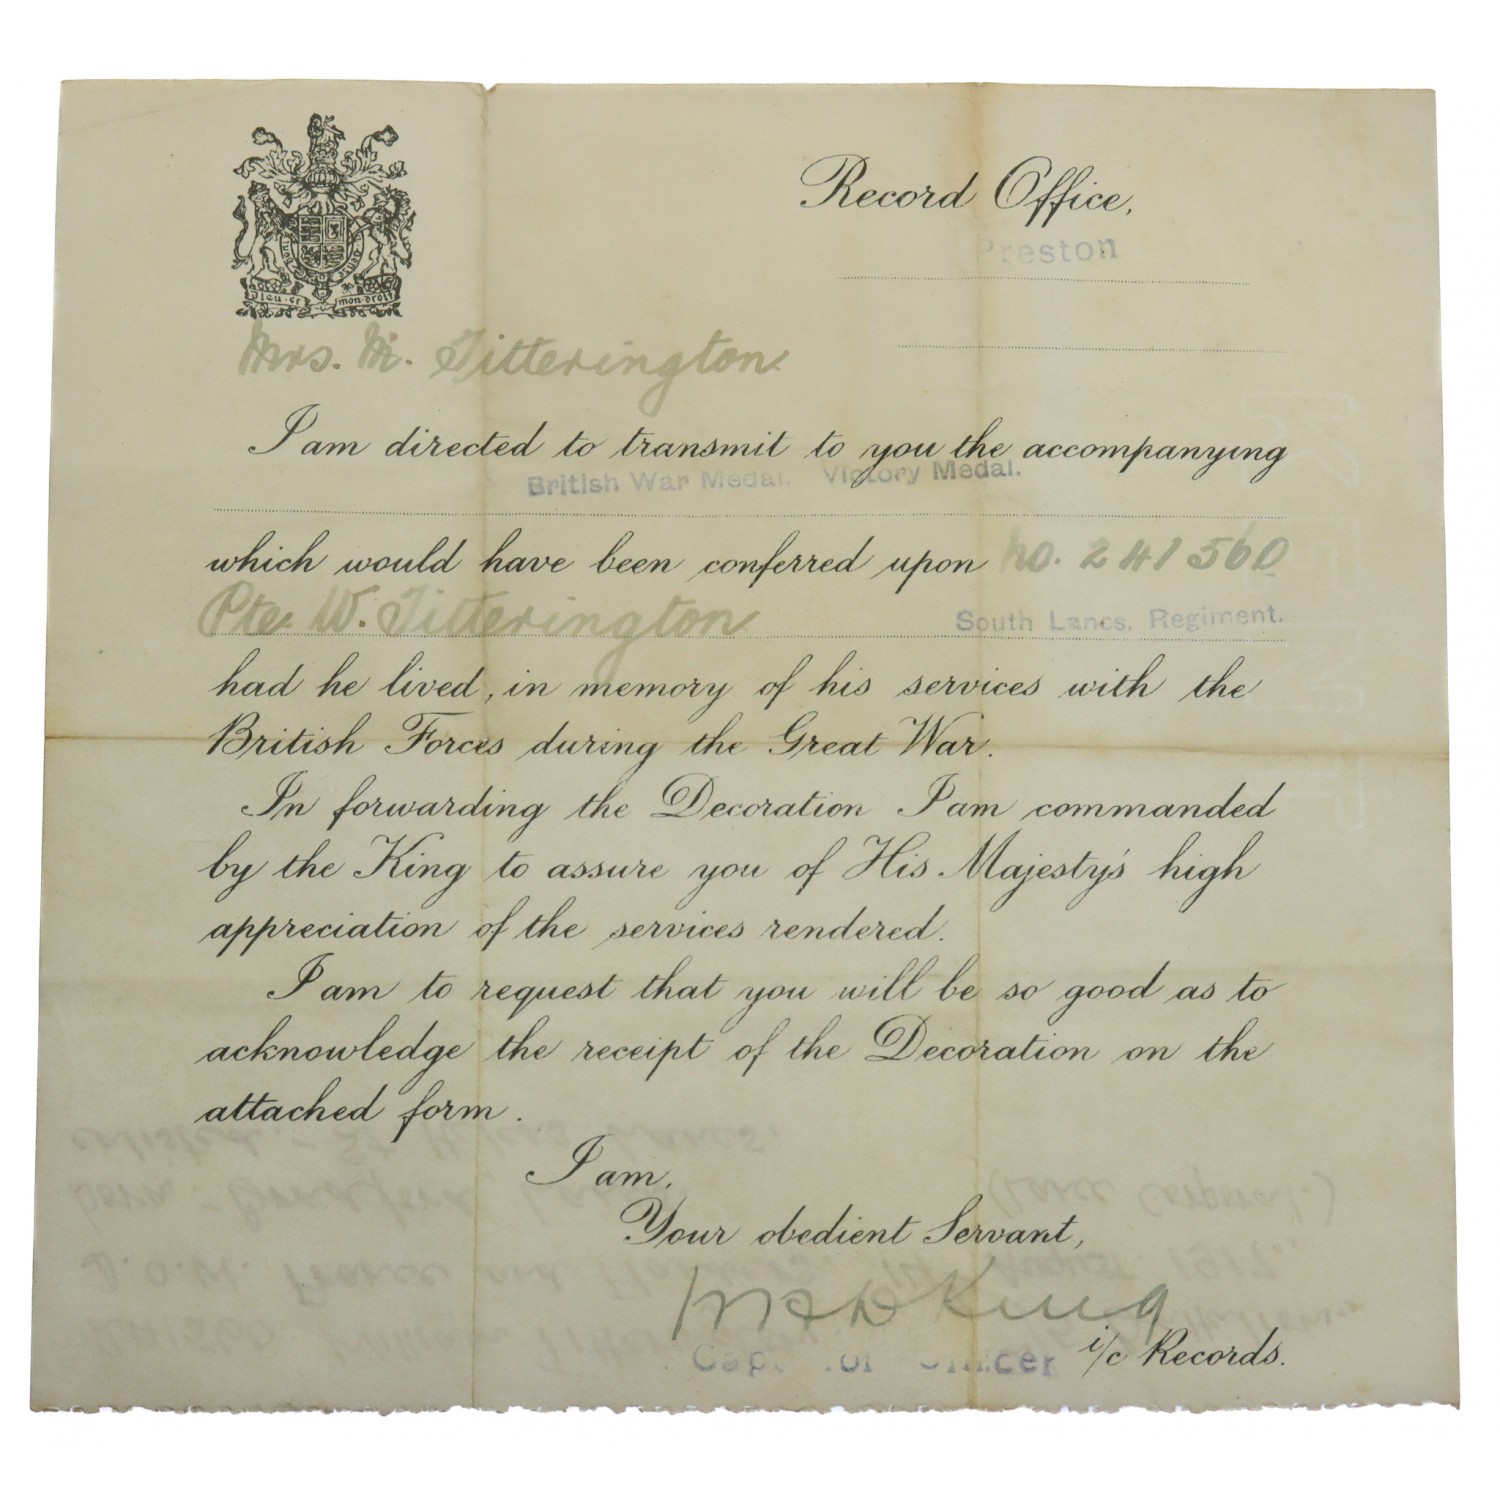 Record Office,
Preston
Dieu et mon droit
Mrs. M. Titterington
I am directed to transmit to you the accompanying
British War Medal. Victory Medal.
which would have been conferred upon No. 241560
Pte. W. Titterington South Lancs. Regiment.
had he lived, in memory of his services with the
British Forces during the Great War.
In forwarding the Decoration I am commanded
by the King to assure you of His Majesty's high
appreciation of the services rendered.
I am to request that you will be so good as to
acknowledge the receipt of the Decoration on the
attached form.
I am,
Your obedient Servant,
King
Officer i/c Records.